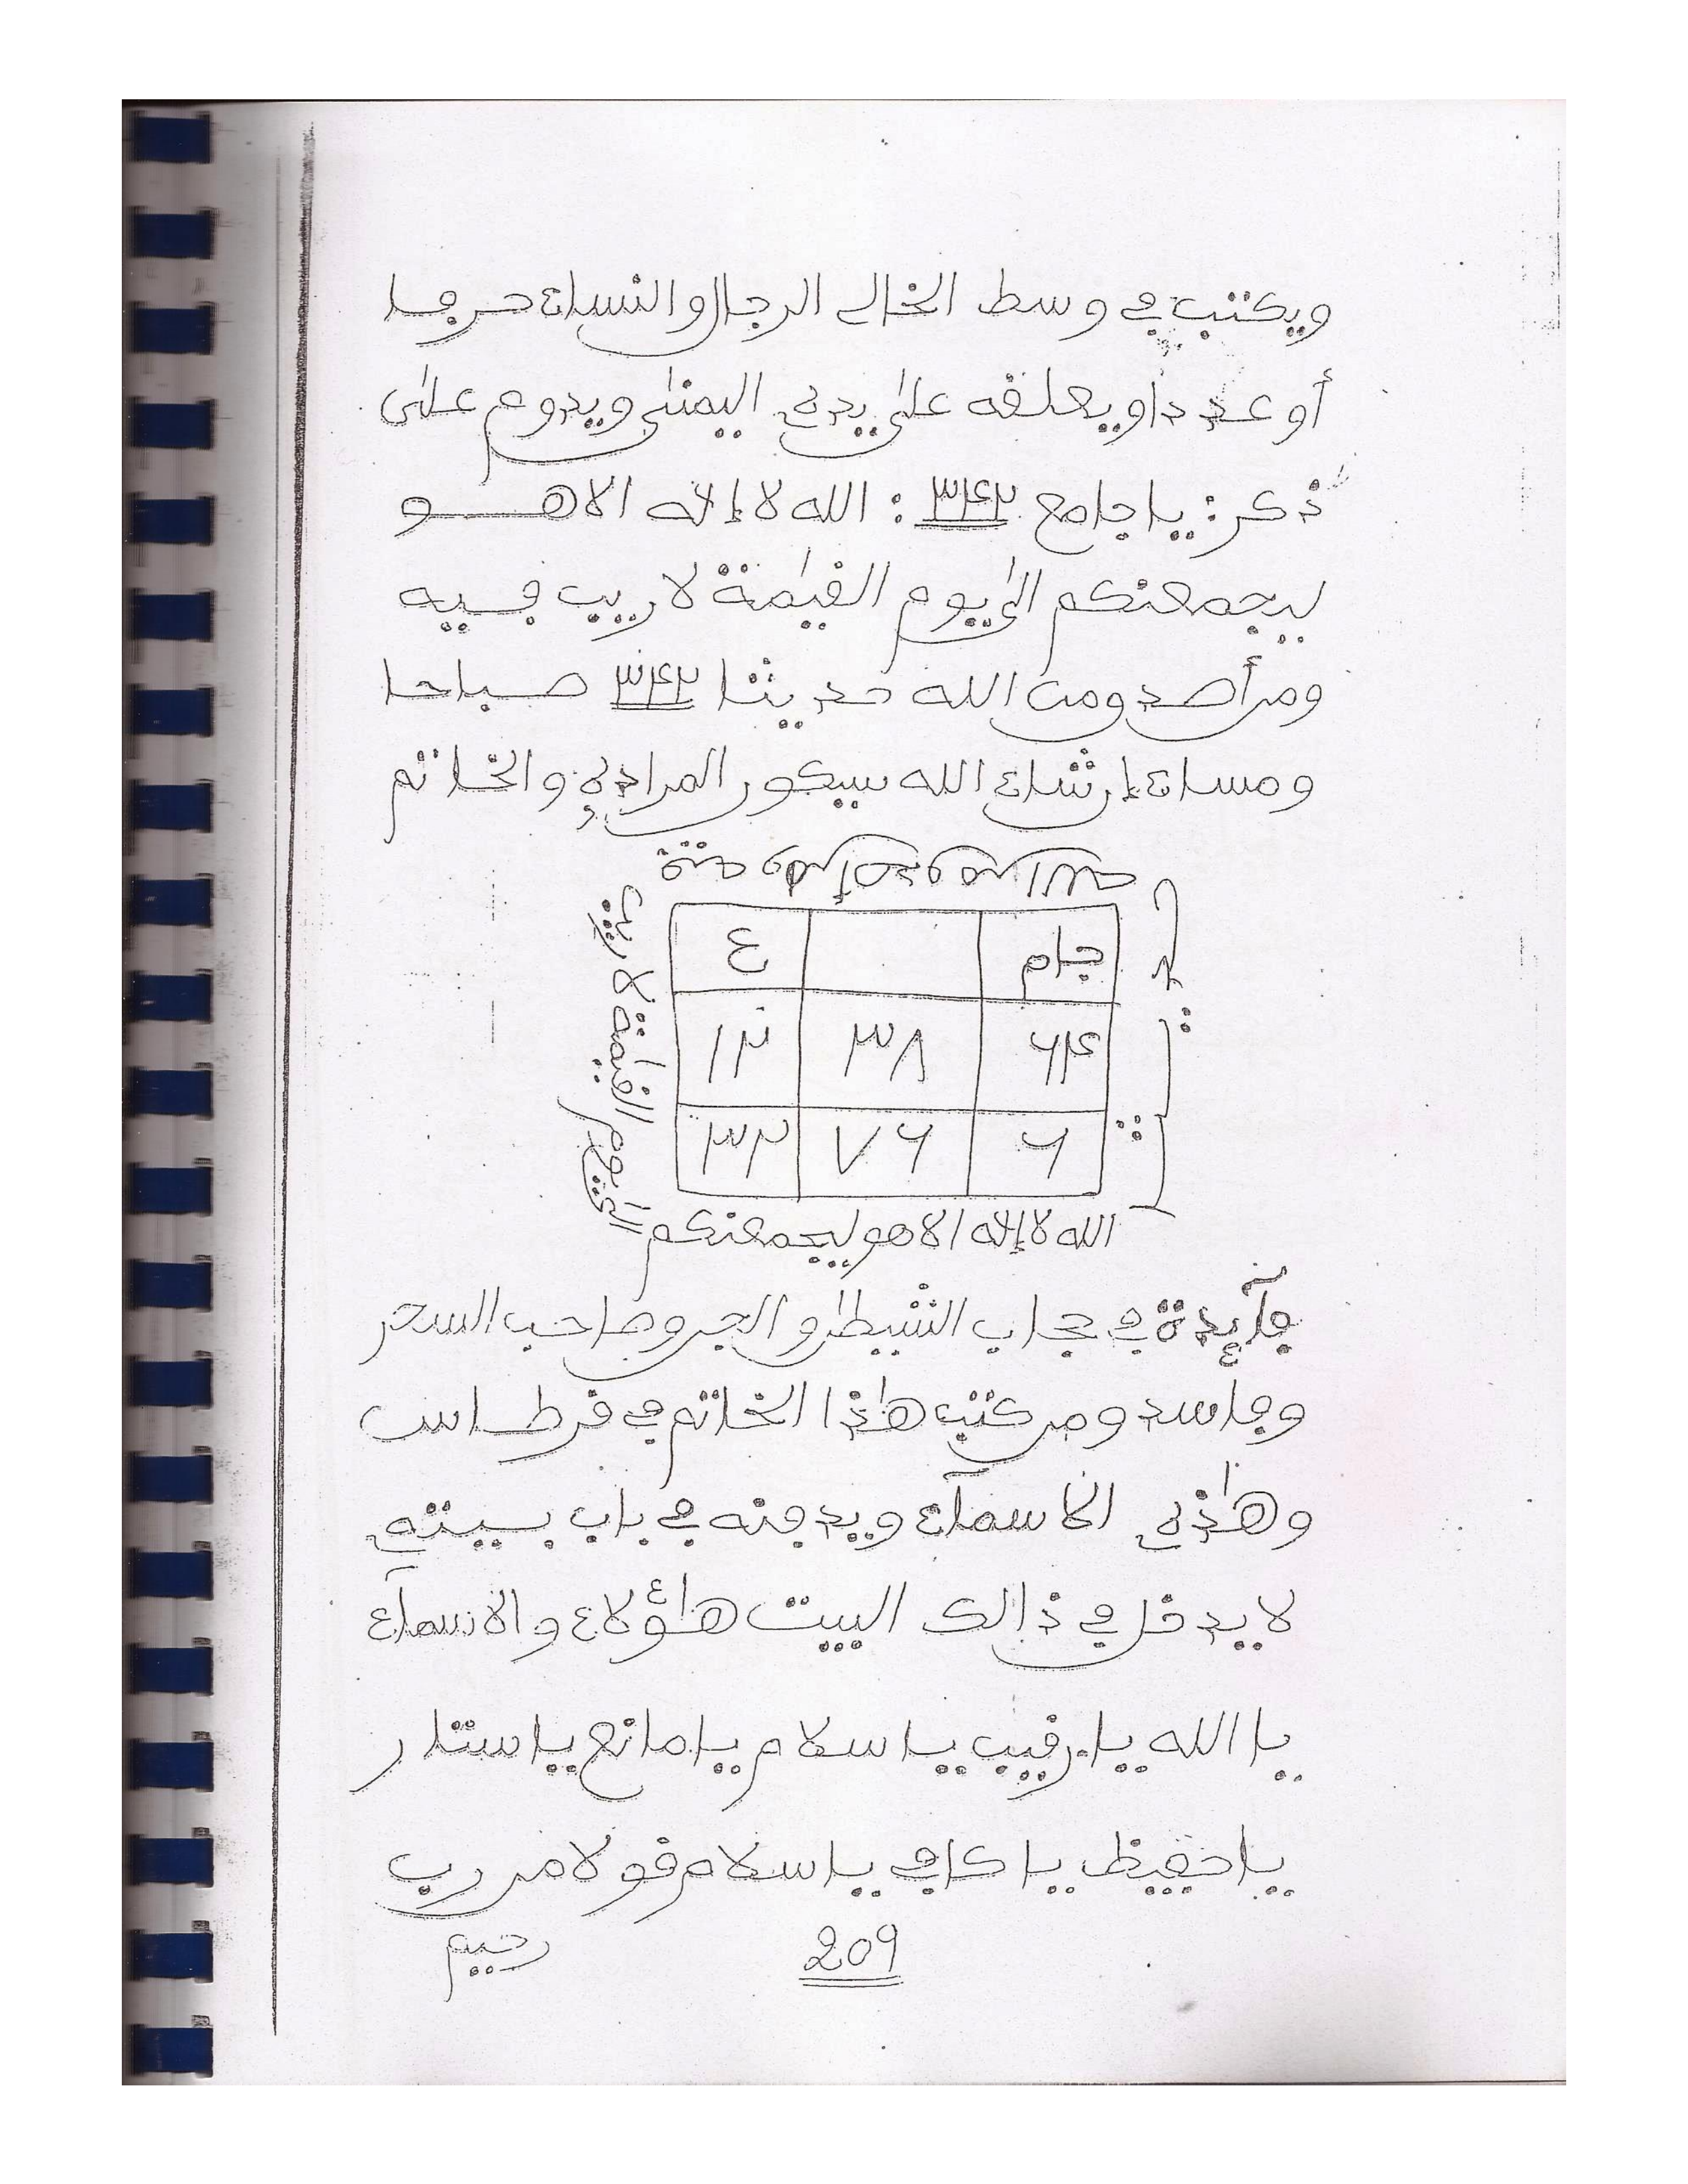 ويكتب في وسط الخالي الرجال والنساء حرفا
أو عددا ويعلقه على يده اليمنى ويدوم على
ذكر: يا جامع ٣٤٢: الله لا إله الا هو
ليجمعنكم الى يوم القيمة لا ريب فيه
ومن أصدق من الله حديثا ٣٤٢ صباحا
ومساء إن شاء الله سيكون المراد والخاتم
جام ع
٦٤ ٣٨ ١٢
٦ ٧٦ ٣٢
الى يوم القيمة لا ريب
الله لا إله الا هو ليجمعنكم
فآئدة في حجاب الشيطن والجن وصاحب السحر
وحاسد ومن كتب هذا الخاتم في قرطاس
وهذه الاسمآء ويدفنه في باب بيته
لا يدخل في ذالك البيت هاؤلاء والاسمآء
يا الله يا رقيب يا سلام يا مانع يا ستار
يا حفيظ يا كافي يا سلام قولا من رب
209 رحيم